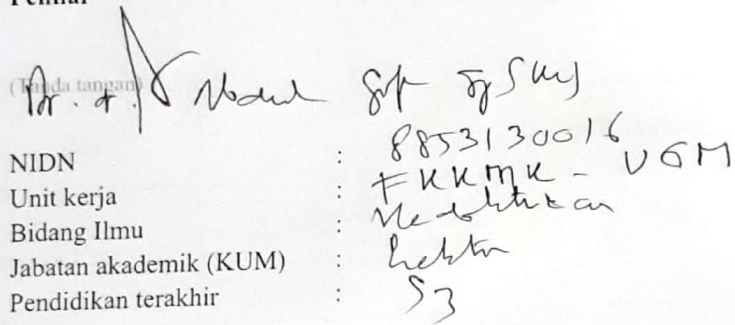 Penilai
(Tanda tangan)
Dr. dr. Abdul Gofir SpS(K)
NIDN : 8853130016
Unit kerja : FKKMK - UGM
Bidang Ilmu : Kedokteran
Jabatan akademik (KUM) : Lektor
Pendidikan terakhir : S3